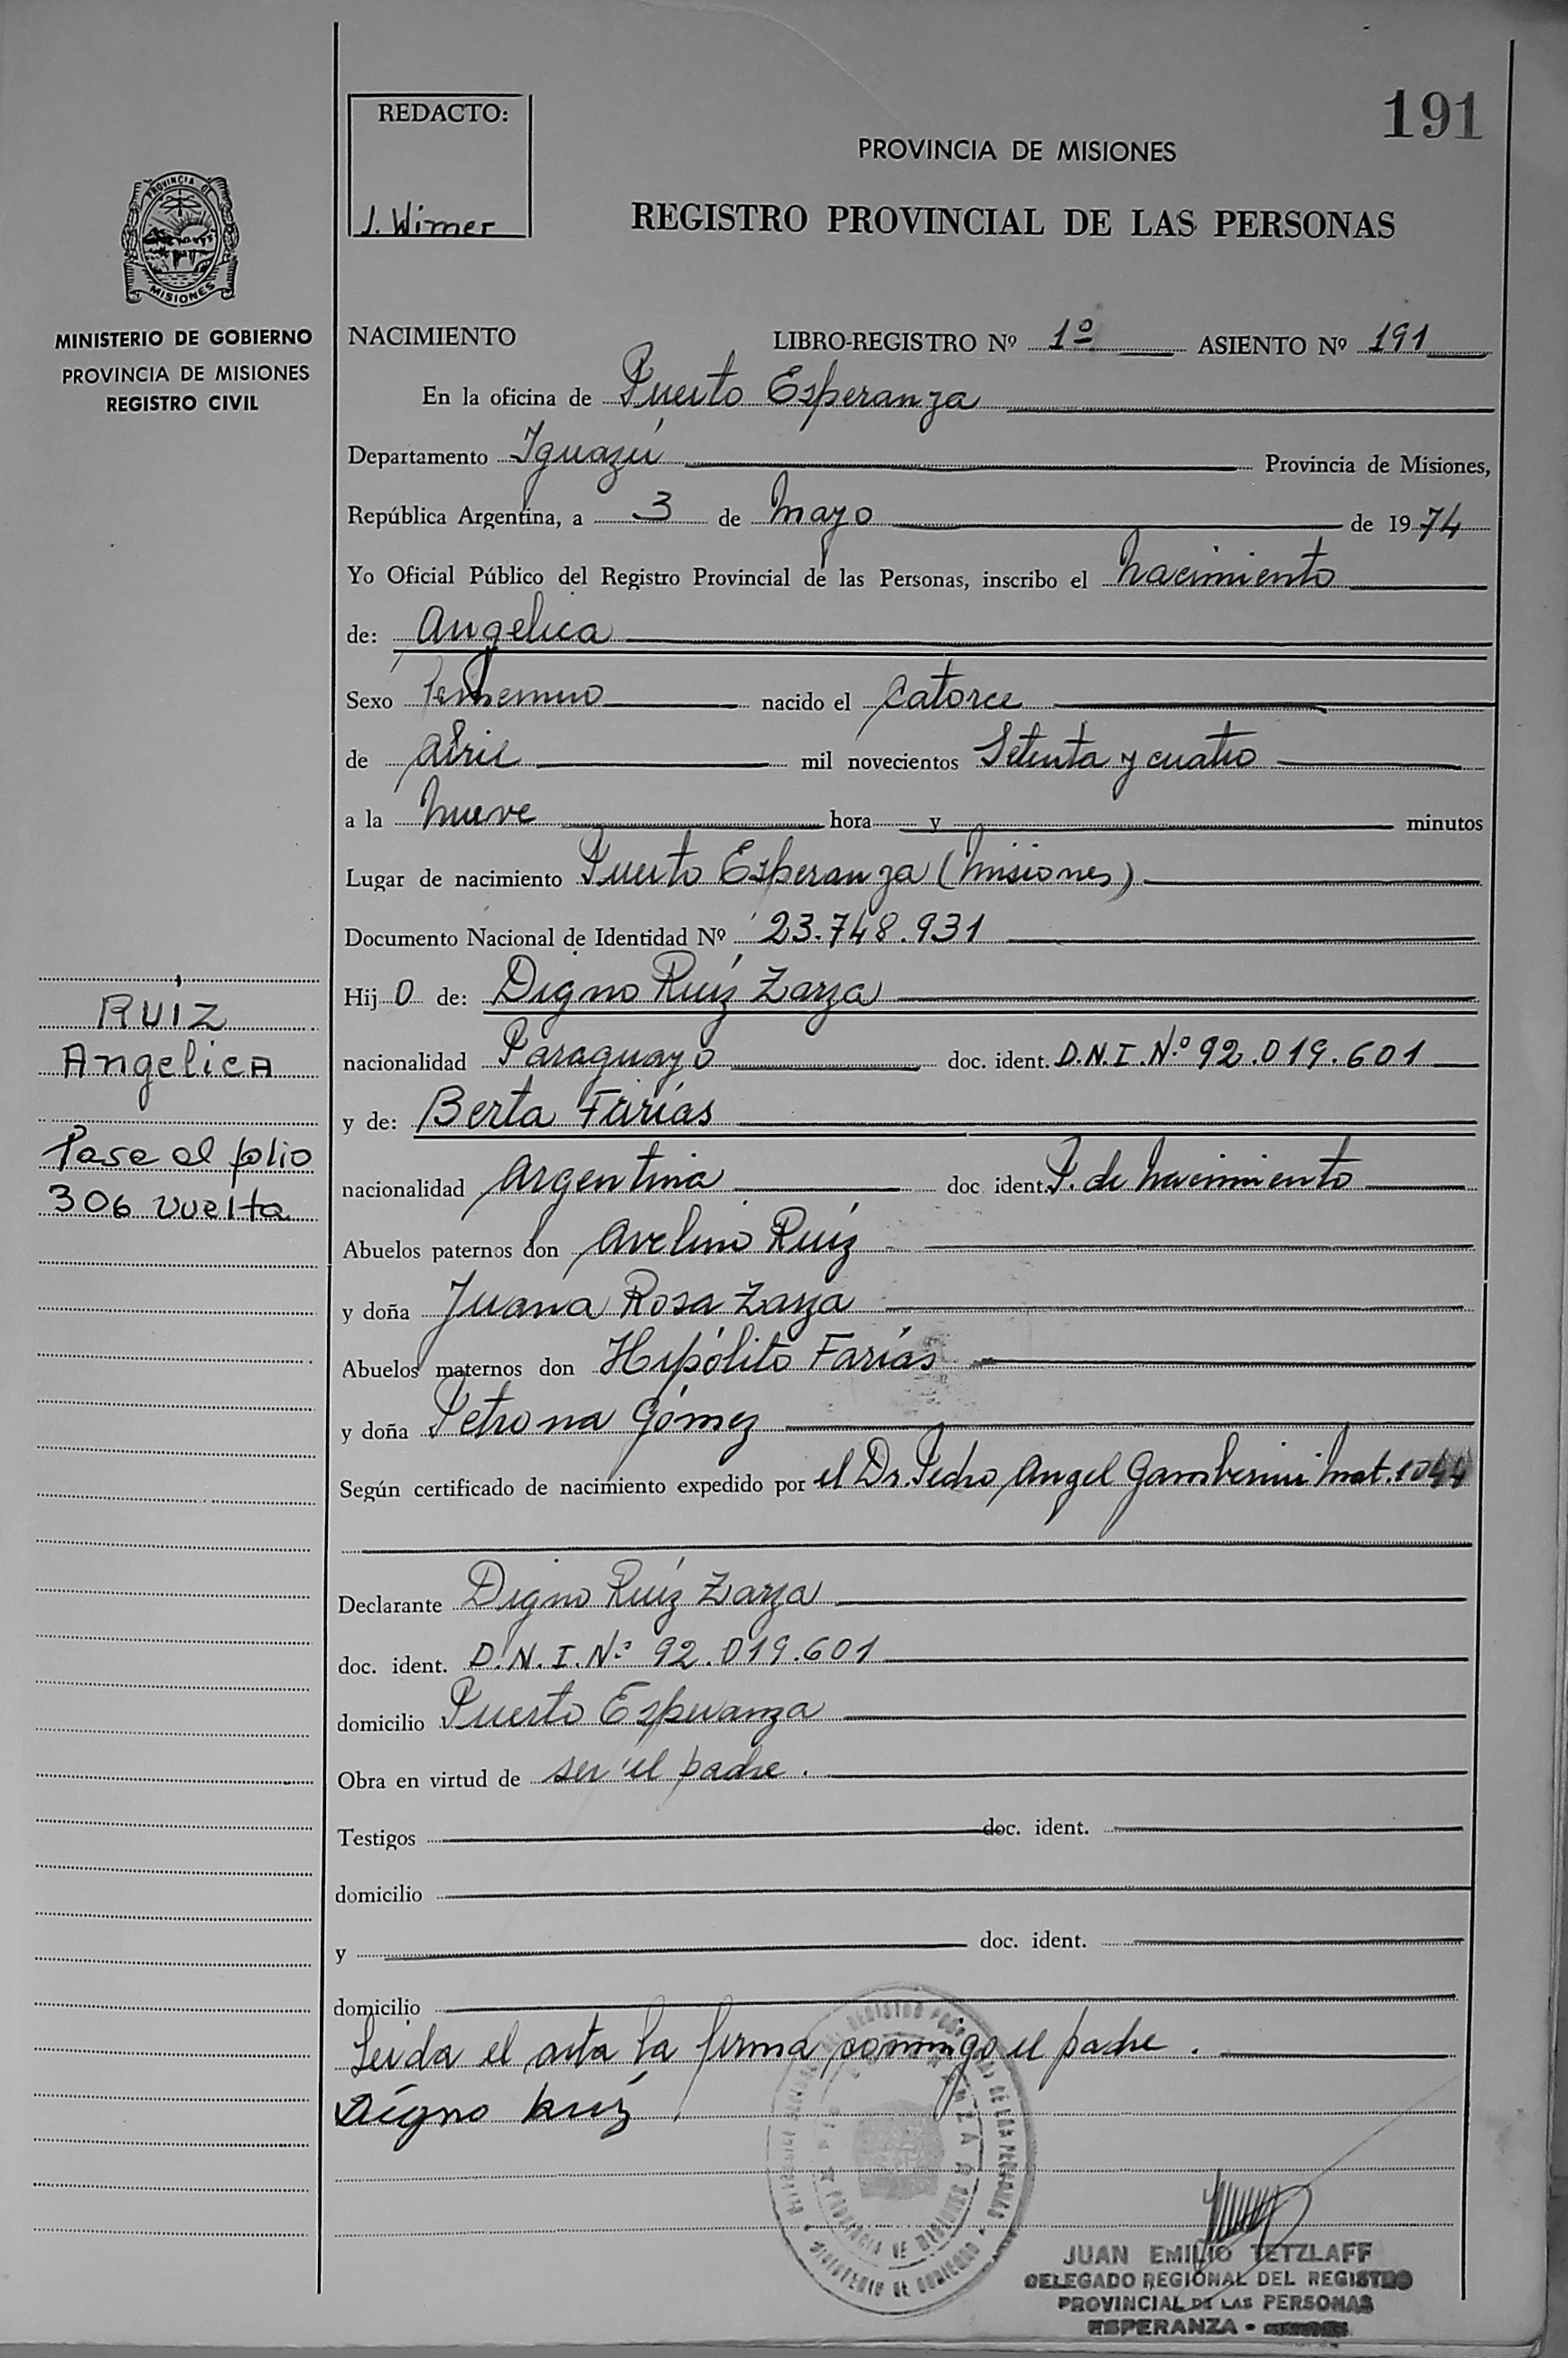 191
REDACTO:
J. Wimer
PROVINCIA DE MISIONES
REGISTRO PROVINCIAL DE LAS PERSONAS
PROVINCIA DE
MISIONES
MINISTERIO DE GOBIERNO
PROVINCIA DE MISIONES
REGISTRO CIVIL
NACIMIENTO LIBRO-REGISTRO Nº 1º ASIENTO Nº 191
En la oficina de Puerto Esperanza
Departamento Iguazú Provincia de Misiones,
República Argentina, a 3 de Mayo de 1974
Yo Oficial Público del Registro Provincial de las Personas, inscribo el nacimiento
de: Angelica
Sexo femenino nacido el catorce
de abril mil novecientos Setenta y cuatro
a la nueve hora y minutos
Lugar de nacimiento Puerto Esperanza (Misiones)
Documento Nacional de Identidad Nº 23.748.931
Hij o de: Digno Ruíz Zarza
nacionalidad Paraguayo doc. ident. D.N.I.Nº 92.019.601
y de: Berta Farías
nacionalidad Argentina doc ident. P. de nacimiento
Abuelos paternos don Avelino Ruíz
y doña Juana Rosa Zarza
Abuelos maternos don Hipólito Farías
y doña Petrona Gómez
Según certificado de nacimiento expedido por el Dr. Pedro Angel Gamberini Mat. 1044
Declarante Digno Ruíz Zarza
doc. ident. D.N.I.Nº 92.019.601
domicilio Puerto Esperanza
Obra en virtud de ser el padre.
Testigos doc. ident.
domicilio
y doc. ident.
domicilio
Leida el acta la firma conmigo el padre.
Digno Ruiz
RUIZ
Angelica
Pase al folio
306 vuelta
JUAN EMILIO TETZLAFF
DELEGADO REGIONAL DEL REGISTRO
PROVINCIAL DE LAS PERSONAS
ESPERANZA -